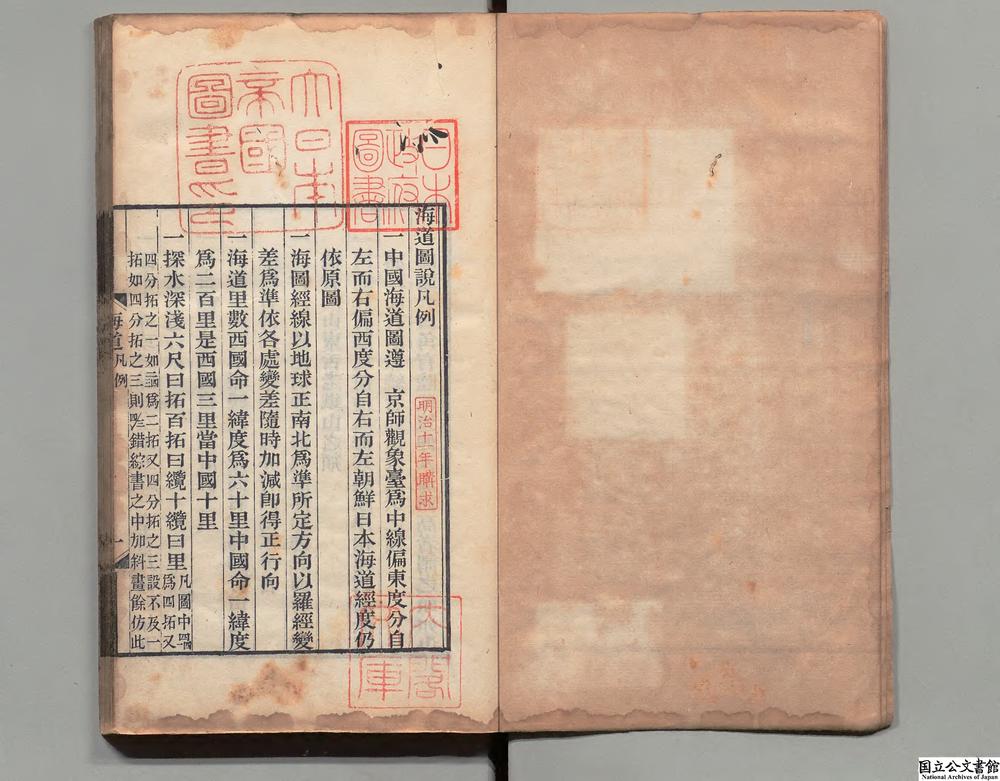 大日本
帝國
圖書印
日本
政府
圖書
海道圖說凡例
明治十一年購求
一中國海道圖遵　京師觀象臺爲中線偏東度分自
左而右偏西度分自右而左朝鮮日本海道經度仍
依原圖
一海圖經線以地球正南北爲準所定方向以羅經變
差爲準依各處變差隨時加減卽得正行向
一海道里數西國命一緯度爲六十里中國命一緯度
爲二百里是西國三里當中國十里
一探水深淺六尺曰拓百拓曰纜十纜曰里
凡圖中
爲四拓又
四分拓之一如爲二拓又四分拓之三設不及一
拓如四分拓之三則錯綜書之中加斜畫餘仿此
海道　凡例　一
内閣
文庫
国立公文書館
National Archives of Japan